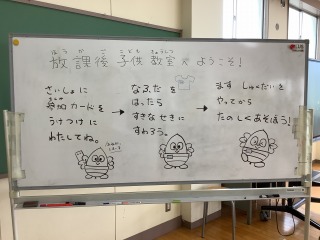 ほうかご こども きょうしつ
放課後 子供 教室 へ ようこそ!
さいしょに
さんか
参加カードを
うけつけに
わたしてね。
→
なふだを
はったら
すきなせきに
すわろう。
→
まず しゅくだいを
やってから
たのしくあそぼう!